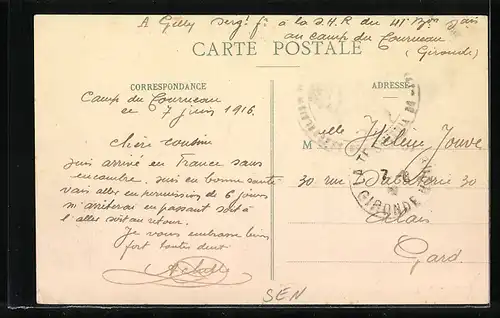 A Gilly Serg.t f.r a la S.H.R du 41 B.on
au camp du Courneau
CARTE POSTALE (Gironde)
CORRESPONDANCE
ADRESSE
Camp du Courneau
ce 7 juin 1916
Chère cousine
suis arrivé en France sans
encombre, suis en bonne santé
vais aller en permission de 6 jours
m'arrêterai en passant soit à
l'aller soit au retour.
Je vous embrasse bien
fort toutes deux
Melle Hélène Jouve
30 rue 30
Alais
Gard.
GIRONDE
SEN